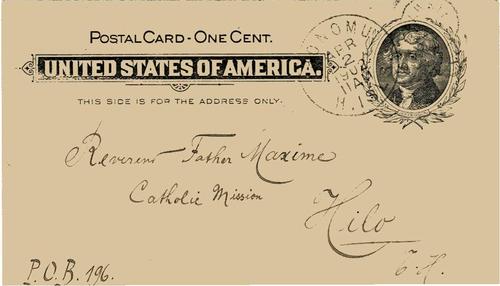 POSTAL CARD - ONE CENT.
UNITED STATES OF AMERICA.
THIS SIDE IS FOR THE ADDRESS ONLY.
APR
2
H. I.
Reverend Father Maxime
Catholic Mission
Hilo
P.O.B. 196.